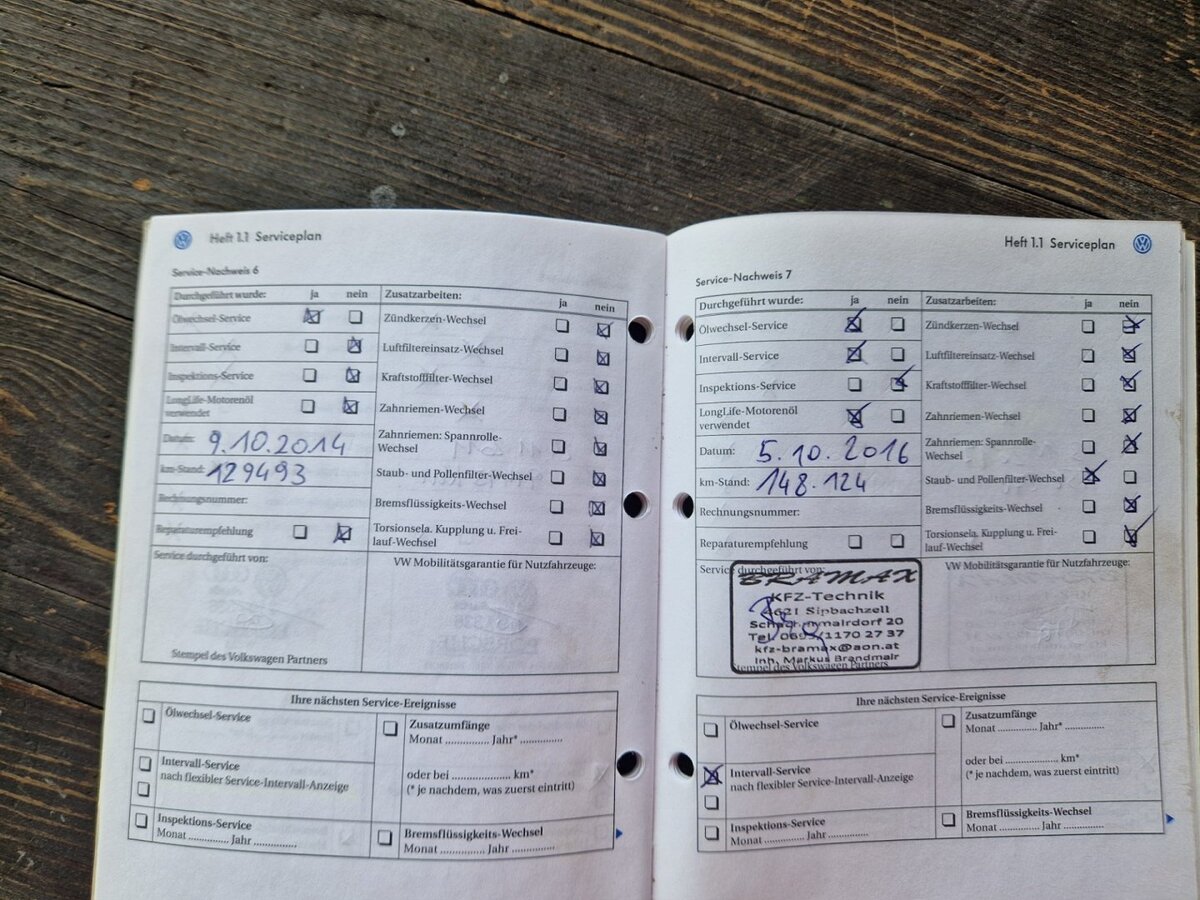 Heft 1.1 Serviceplan
Service-Nachweis 6
Durchgeführt wurde: ja nein
Ölwechsel-Service
Intervall-Service
Inspektions-Service
LongLife-Motorenöl
verwendet
Datum: 9.10.2014
km-Stand: 129493
Rechnungsnummer:
Reparaturempfehlung
Zusatzarbeiten: ja nein
Zündkerzen-Wechsel
Luftfiltereinsatz-Wechsel
Kraftstofffilter-Wechsel
Zahnriemen-Wechsel
Zahnriemen: Spannrolle-
Wechsel
Staub- und Pollenfilter-Wechsel
Bremsflüssigkeits-Wechsel
Torsionsela. Kupplung u. Frei-
lauf-Wechsel
Service durchgeführt von:
Stempel des Volkswagen Partners
VW Mobilitätsgarantie für Nutzfahrzeuge:
Ihre nächsten Service-Ereignisse
Ölwechsel-Service
Intervall-Service
nach flexibler Service-Intervall-Anzeige
Inspektions-Service
Monat ............... Jahr ...............
Zusatzumfänge
Monat ............... Jahr* ...............
oder bei ..................... km*
(* je nachdem, was zuerst eintritt)
Bremsflüssigkeits-Wechsel
Monat ............... Jahr ...............
Heft 1.1 Serviceplan
Service-Nachweis 7
Durchgeführt wurde: ja nein
Ölwechsel-Service
Intervall-Service
Inspektions-Service
LongLife-Motorenöl
verwendet
Datum: 5.10.2016
km-Stand: 148.124
Rechnungsnummer:
Reparaturempfehlung
Zusatzarbeiten: ja nein
Zündkerzen-Wechsel
Luftfiltereinsatz-Wechsel
Kraftstofffilter-Wechsel
Zahnriemen-Wechsel
Zahnriemen: Spannrolle-
Wechsel
Staub- und Pollenfilter-Wechsel
Bremsflüssigkeits-Wechsel
Torsionsela. Kupplung u. Frei-
lauf-Wechsel
Service durchgeführt von:
BRAMAX
KFZ-Technik
4621 Sipbachzell
20
Tel. 1170 27 37
kfz-bramax@aon.at
Inh. Markus Brandmair
Stempel des Volkswagen Partners
VW Mobilitätsgarantie für Nutzfahrzeuge:
Ihre nächsten Service-Ereignisse
Ölwechsel-Service
Intervall-Service
nach flexibler Service-Intervall-Anzeige
Inspektions-Service
Monat ............... Jahr ...............
Zusatzumfänge
Monat ............... Jahr* ...............
oder bei ..................... km*
(* je nachdem, was zuerst eintritt)
Bremsflüssigkeits-Wechsel
Monat ............... Jahr ...............